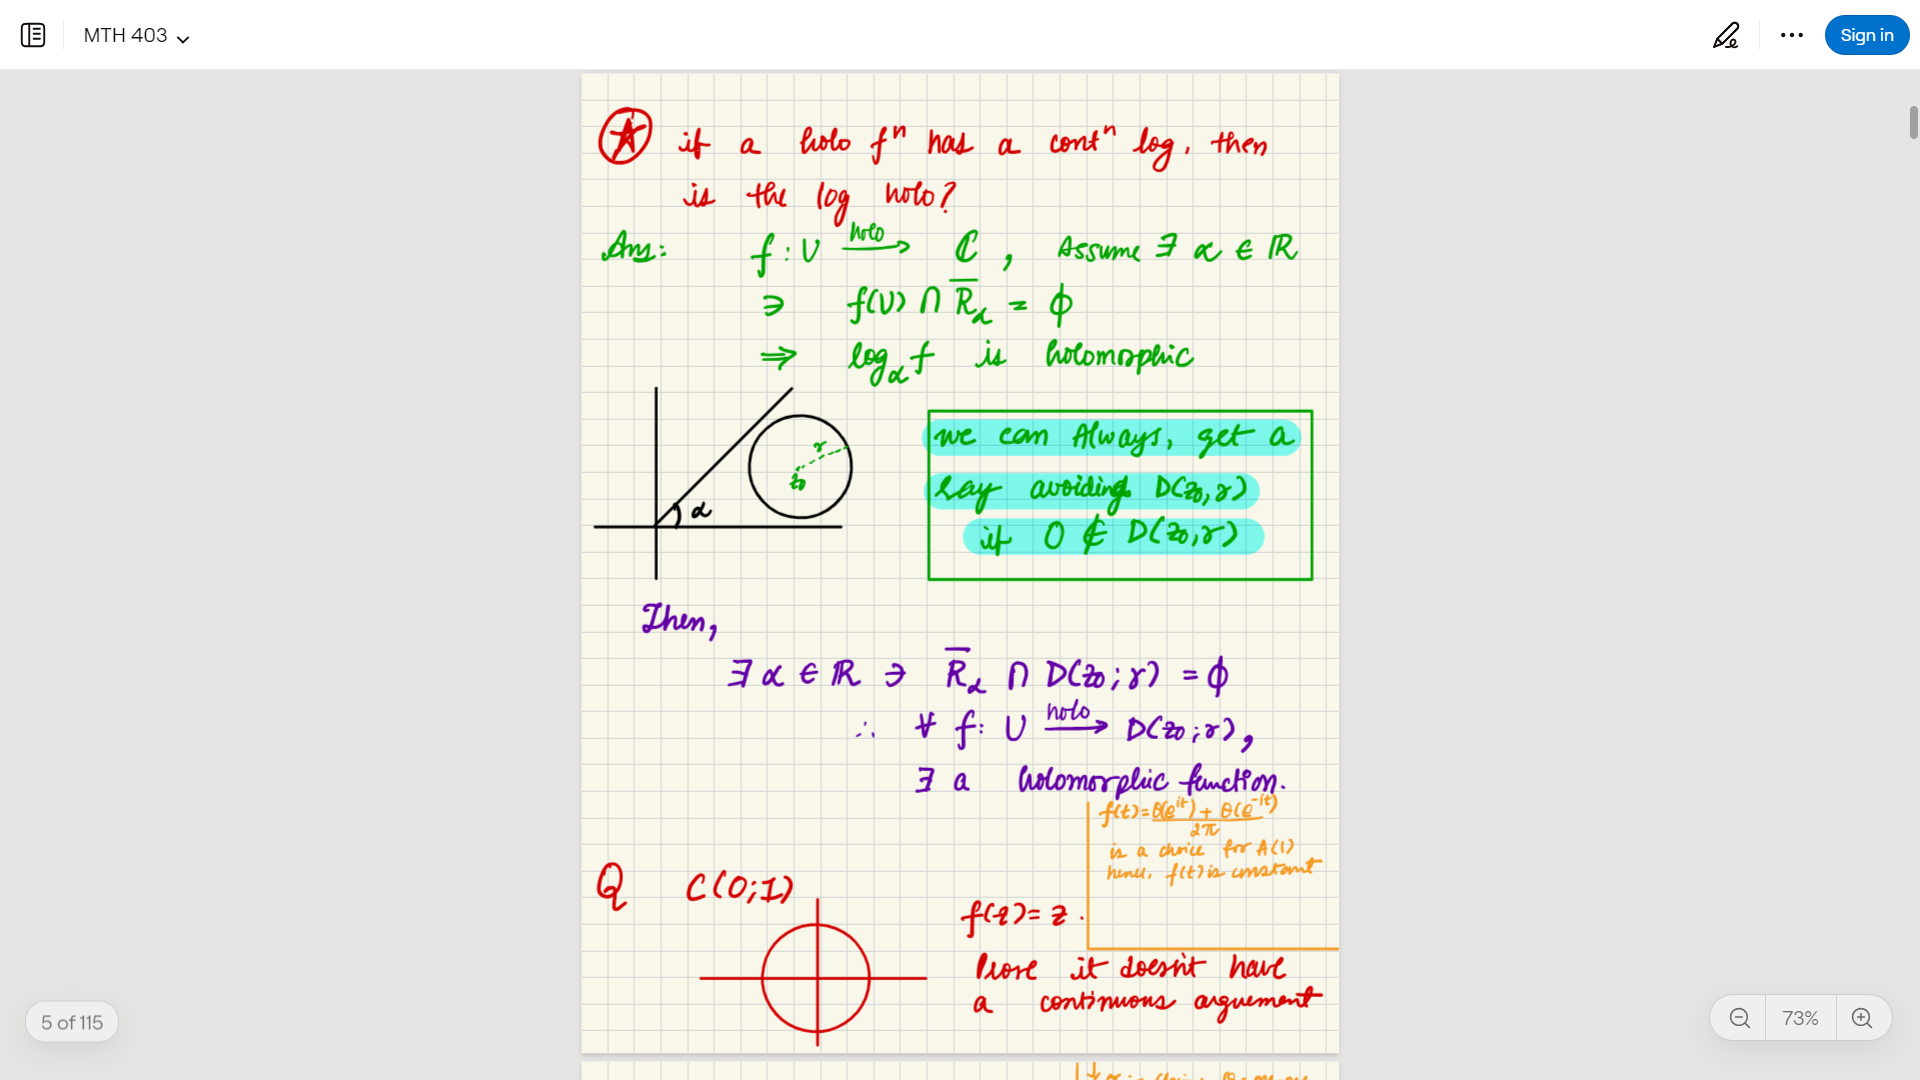 MTH 403
Sign in
if a holo fⁿ has a contⁿ log, then
is the log holo?
Ans: f : U holo→ ℂ, Assume ∃ α ∈ ℝ
∋ f(U) ∩ R̅_α = ϕ
⇒ log_α f is holomorphic
r
z₀
α
we can Always, get a
Ray avoiding D(z₀, r)
if 0 ∉ D(z₀, r)
Then,
∃ α ∈ ℝ ∋ R̅_α ∩ D(z₀; r) = ϕ
∴ ∀ f: U holo→ D(z₀; r),
∃ a holomorphic function.
f(t) = θ(e^{it}) + θ(e^{-it})
2π
is a choice for A(1)
hence, f(t) is constant
Q C(0;1)
f(z) = z.
Prove it doesn't have
a continuous arguement
5 of 115
73%